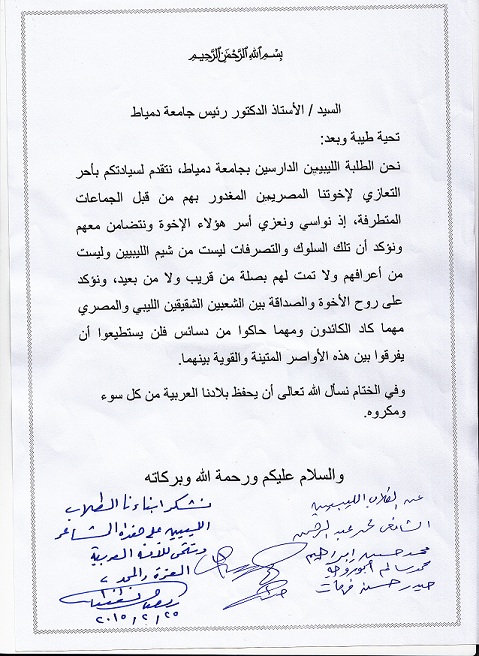 بسم الله الرحمن الرحيم
السيد / الأستاذ الدكتور رئيس جامعة دمياط
تحية طيبة وبعد:
نحن الطلبة الليبيين الدارسين بجامعة دمياط، نتقدم لسيادتكم بأحر
التعازي لإخوتنا المصريين المغدور بهم من قبل الجماعات
المتطرفة، إذ نواسي ونعزي أسر هؤلاء الإخوة ونتضامن معهم
ونؤكد أن تلك السلوك والتصرفات ليست من شيم الليبيين وليست
من أعرافهم ولا تمت لهم بصلة من قريب ولا من بعيد، ونؤكد
على روح الأخوة والصداقة بين الشعبين الشقيقين الليبي والمصري
مهما كاد الكائدون ومهما حاكوا من دسائس فلن يستطيعوا أن
يفرقوا بين هذه الأواصر المتينة والقوية بينهما.
وفي الختام نسأل الله تعالى أن يحفظ بلادنا العربية من كل سوء
ومكروه.
والسلام عليكم ورحمة الله وبركاته
عن الطلاب الليبيين
محمد عبد الرحمن
محمد حسين ابراهيم
محمد سالم
حيدر حسن فرحات
نشكر ابناءنا الطلاب
الليبيين على هذه المشاعر
ونتمنى للأمة العربية
العزة والمجد
٢٠١٥/٢/٢٥